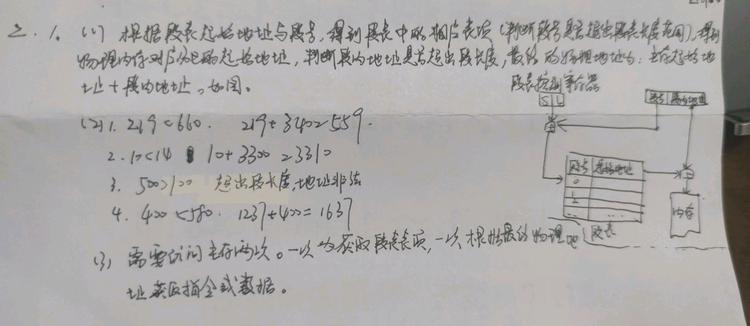 二. 1. (1) 根据段表起始地址与段号,得到段表中的相应表项(判断段号是否超出段表长度范围),得到
物理内存对应的起始地址,判断段内地址是否超出段长度,最终的物理地址为:主存起始地
址+段内地址。如图。
段表控制寄存器
段号 段内地址
(2) 1. 219<660. 219+340=559.
2. 10<14 10+3300=3310
3. 500>100 超出段长度,地址非法
4. 400<580. 1237+400=1637
段号 起始地址
0
1
内存
段表
(3) 需要访问主存两次。一次为获取段表表项,一次根据最终物理地
址获取指令或数据。